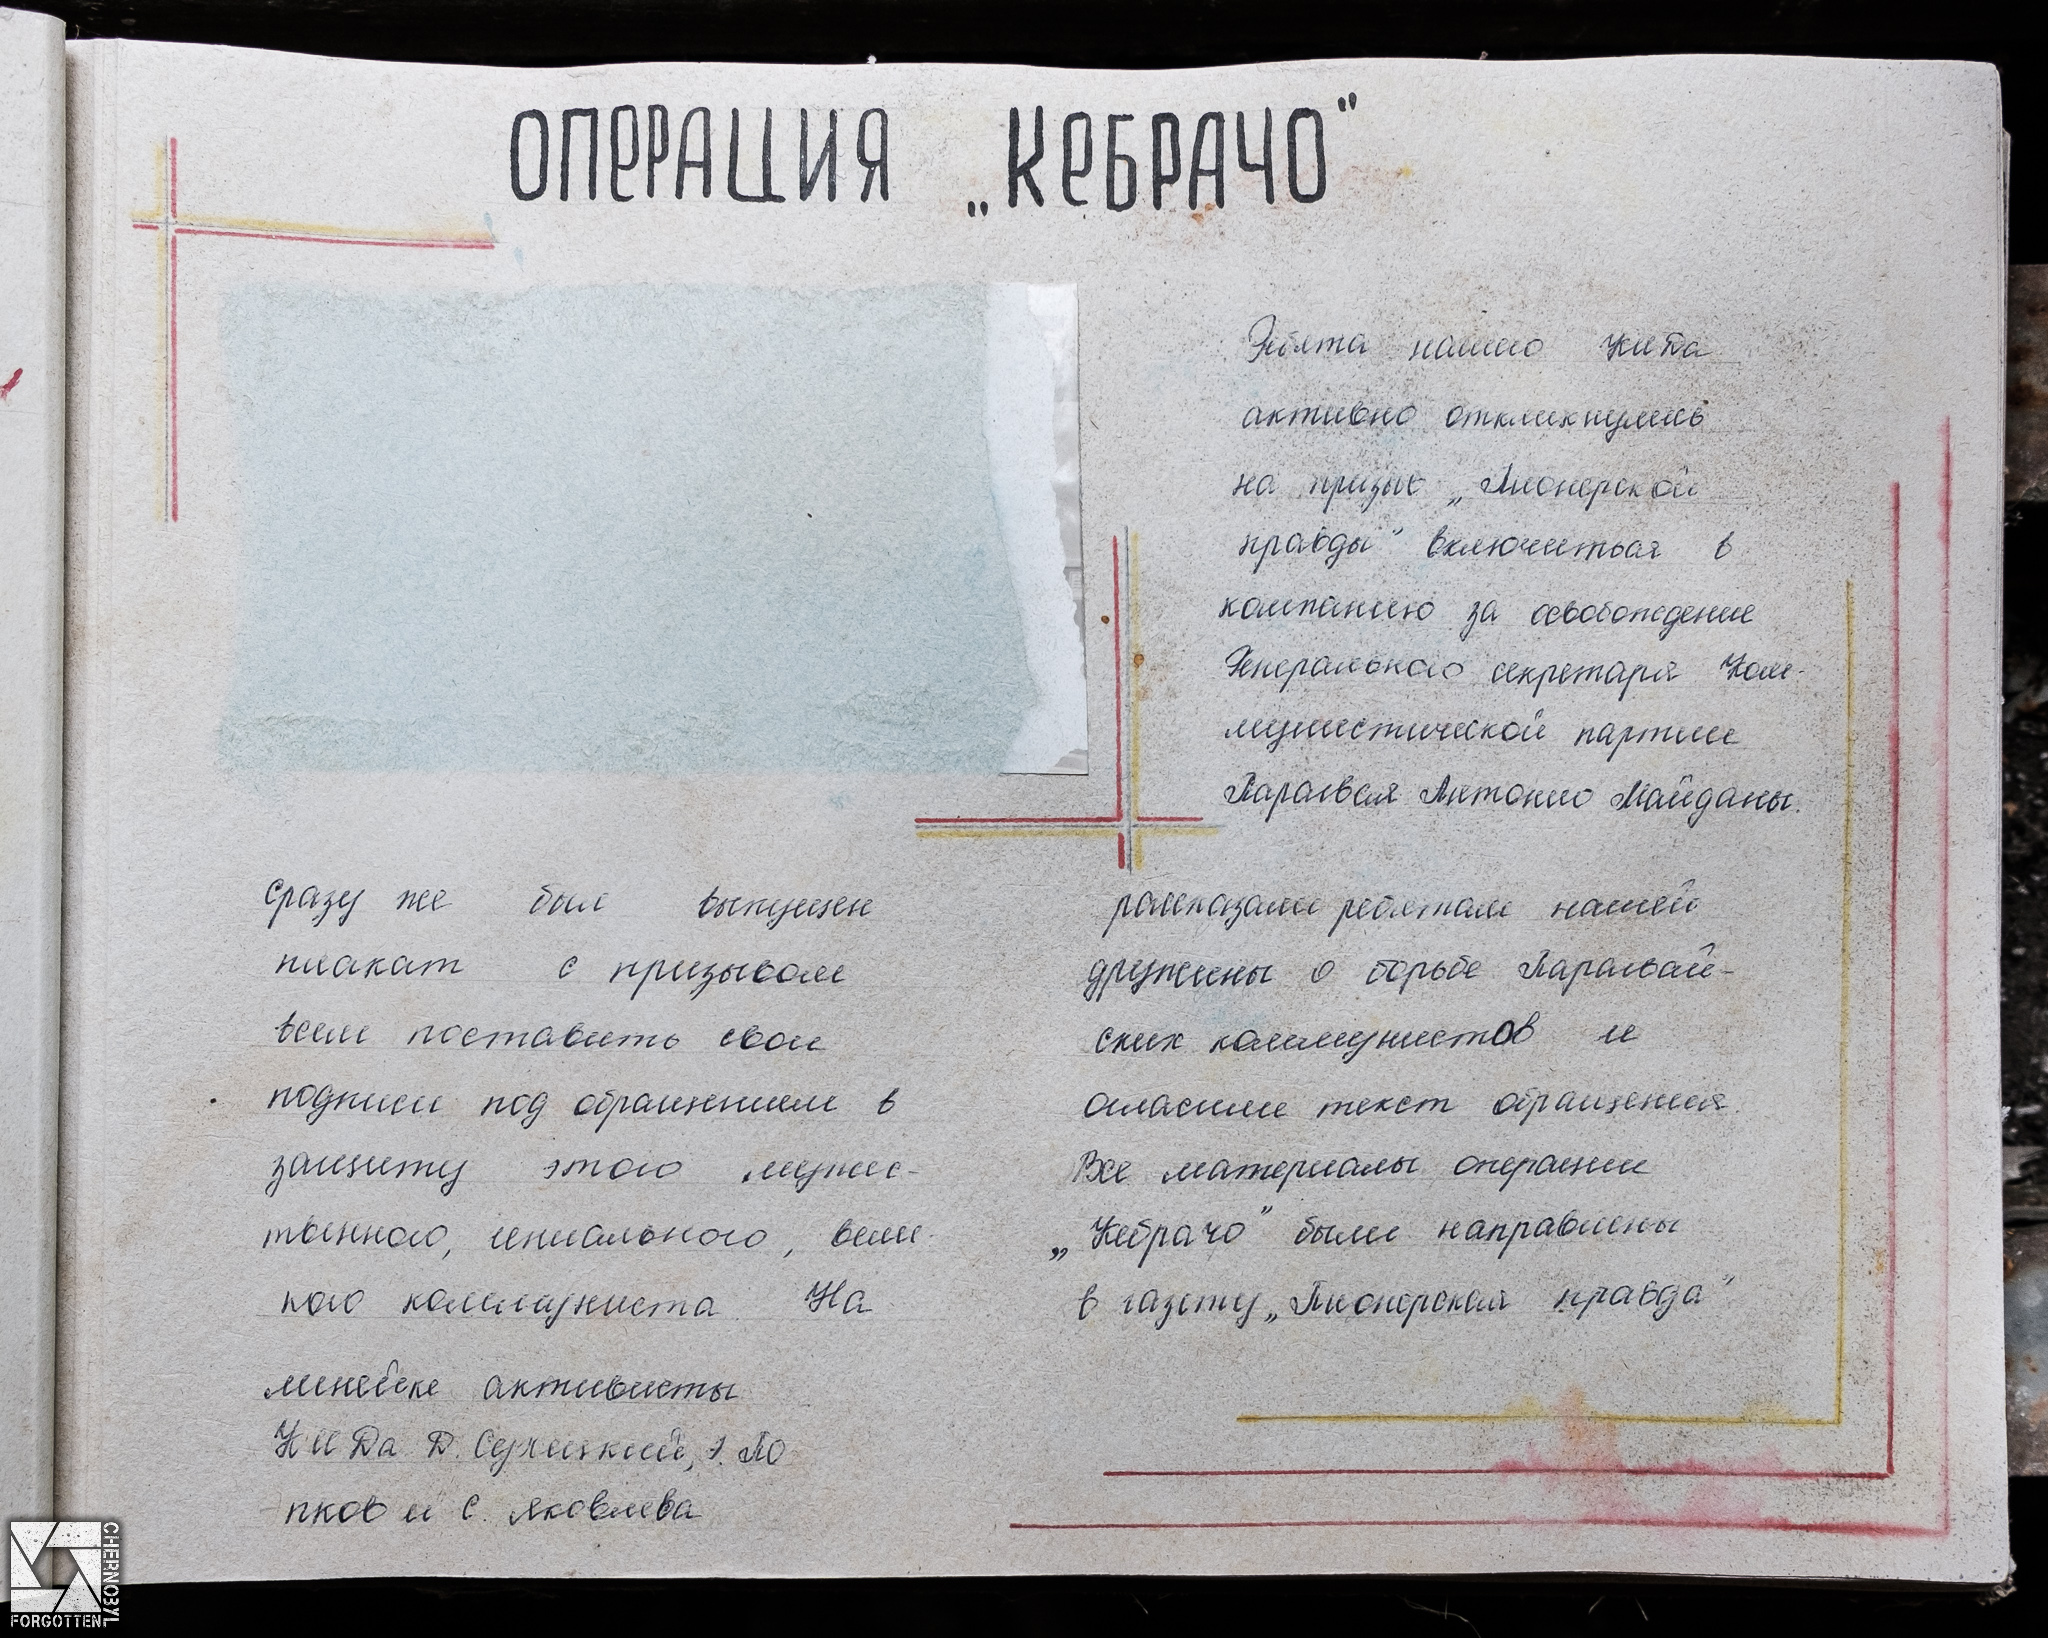 ОПЕРАЦИЯ „КЕБРАЧО"
Ребята нашего КИДа
активно откликнулись
на призыв „Пионерской
правды" включиться в
компанию за освобождение
Генерального секретаря Ком-
мунистической партии
Парагвая Антонио Майданы.
Сразу же был выпущен
плакат с призывом
всем поставить свои
подписи под обращением в
защиту этого мужес-
твенного, гениального, вели-
кого коммуниста. На
линейке активисты
КИДа Д. Сулицкий, По
пков и С. Яковлева
рассказали ребятам нашей
дружины о борьбе Парагвай-
ских коммунистов и
огласили текст обращения.
Все материалы операции
„Кебрачо" были направлены
в газету „Пионерская правда"
CHERNO3YL
FORGOTTEN